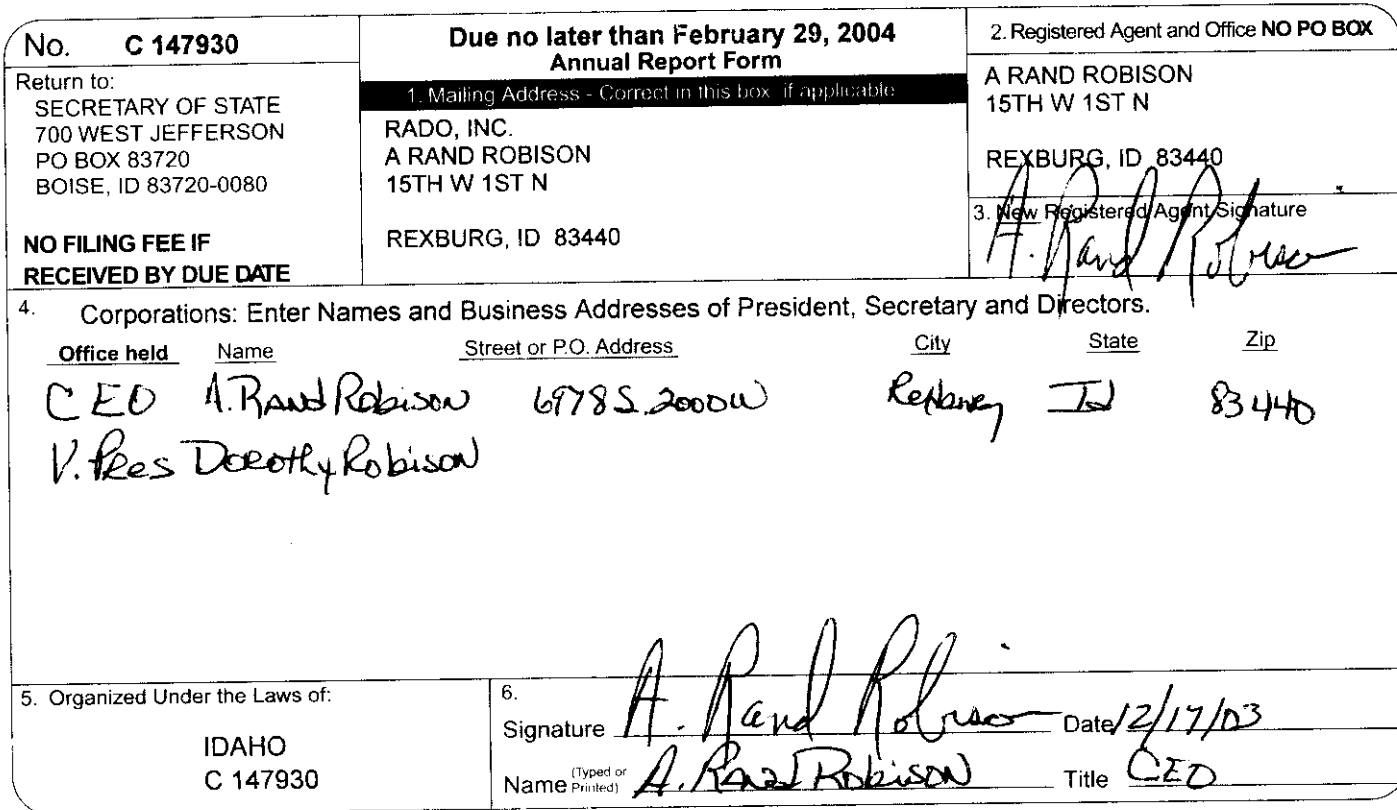 No. C 147930
Return to:
SECRETARY OF STATE
700 WEST JEFFERSON
PO BOX 83720
BOISE, ID 83720-0080
NO FILING FEE IF
RECEIVED BY DUE DATE
Due no later than February 29, 2004
Annual Report Form
1. Mailing Address - Correct in this box if applicable
RADO, INC.
A RAND ROBISON
15TH W 1ST N
REXBURG, ID 83440
2. Registered Agent and Office NO PO BOX
A RAND ROBISON
15TH W 1ST N
REXBURG, ID 83440
3. New Registered Agent Signature
A. Rand Robison
4. Corporations: Enter Names and Business Addresses of President, Secretary and Directors.
Office held Name Street or P.O. Address City State Zip
CEO A. Rand Robison 6978 S. 2000 W Rexburg Id 83440
V. Pres Dorothy Robison
5. Organized Under the Laws of:
IDAHO
C 147930
6.
Signature A. Rand Robison Date 12/17/03
Name (Typed or Printed) A. Rand Robison Title CEO